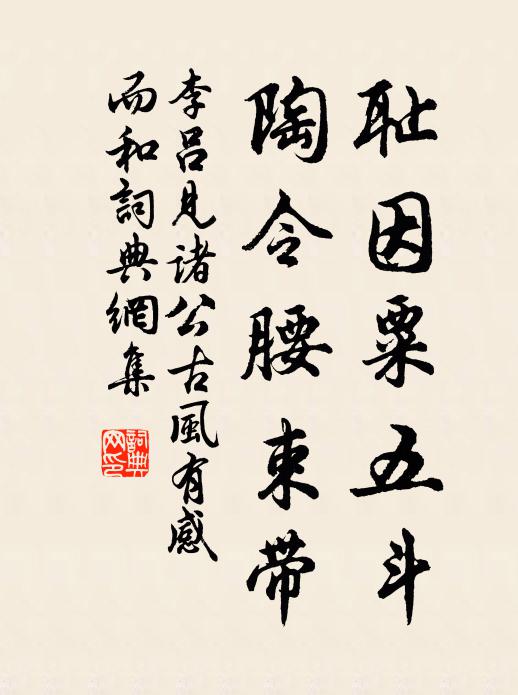 耻因粟五斗
陶令腰束带
李吕见諸公古風有感
而和詞典網集
詞典网印